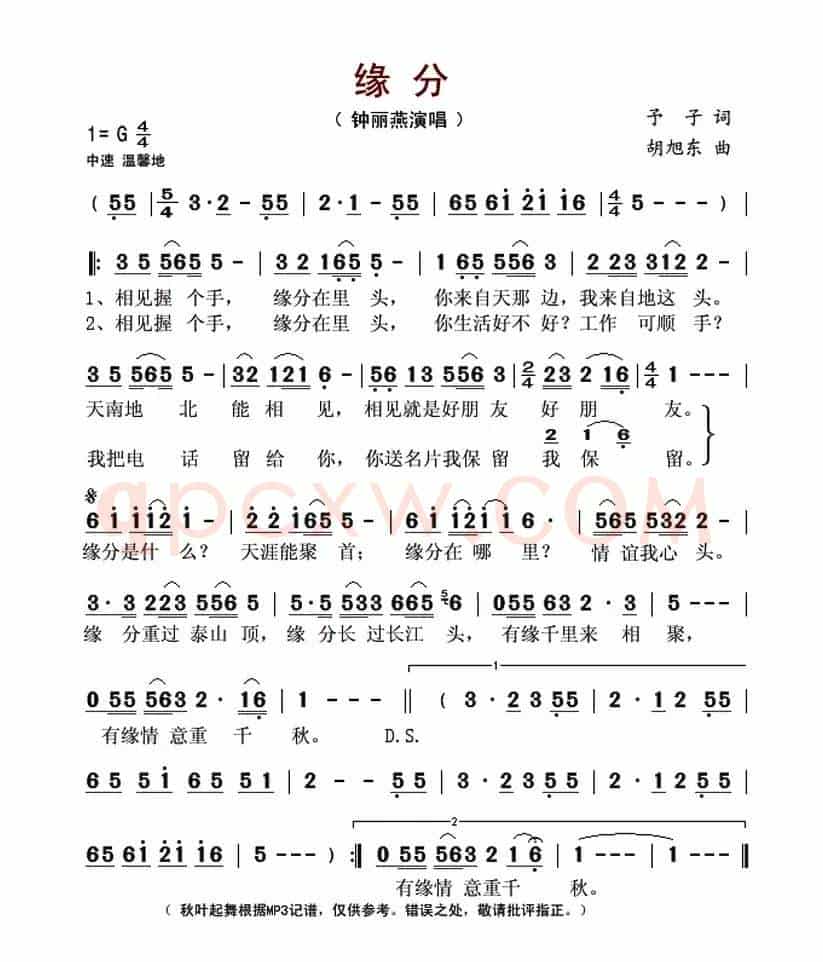 缘 分
（ 钟丽燕演唱 ）
予 子 词
1= G 4/4
胡旭东 曲
中速 温馨地
( 55 | 5/4 3 · 2 - 55 | 2 · 1 - 55 | 65 61 21 16 | 4/4 5 - - - ) |
‖: 3 5 565 5 - | 3 2 165 5 - | 1 65 556 3 | 2 23 312 2 - |
1、相见握 个手， 缘分在里 头， 你来自天那 边，我来自地这 头。
2、相见握 个手， 缘分在里 头， 你生活好不 好？工作 可顺 手？
3 5 565 5 - | 32 121 6 - | 56 13 556 3 | 2/4 23 2 16 | 4/4 1 - - - |
天南地 北 能 相 见，相见就是好朋 友 好 朋 友。
2 1 6
我把电 话 留 给 你，你送名片我保 留 我 保 留。
6 1 112 1 - | 2 2 165 5 - | 61 121 6 · | 565 532 2 - |
缘分是什 么？ 天涯能聚 首； 缘分在 哪 里？ 情 谊我心 头。
3 · 3 223 556 5 | 5 · 5 533 665 56 | 0 55 63 2 · 3 | 5 - - - |
缘 分重过 泰山 顶，缘 分长 过长江 头，有缘千里来 相 聚，
1
0 55 563 2 · 16 | 1 - - - ‖ ( 3 · 2 3 55 | 2 · 1 2 55 |
有缘情 意重 千 秋。 D.S.
65 51 65 51 | 2 - - 55 | 3 · 2 3 55 | 2 · 1 2 55 |
2
65 61 21 16 | 5 - - - ) :‖ 0 55 563 2 1 6 | 1 - - - | 1 - - - ‖
有缘情 意重千 秋。
（ 秋叶起舞根据MP3记谱，仅供参考。错误之处，敬请批评指正。）
qpcxw.COM